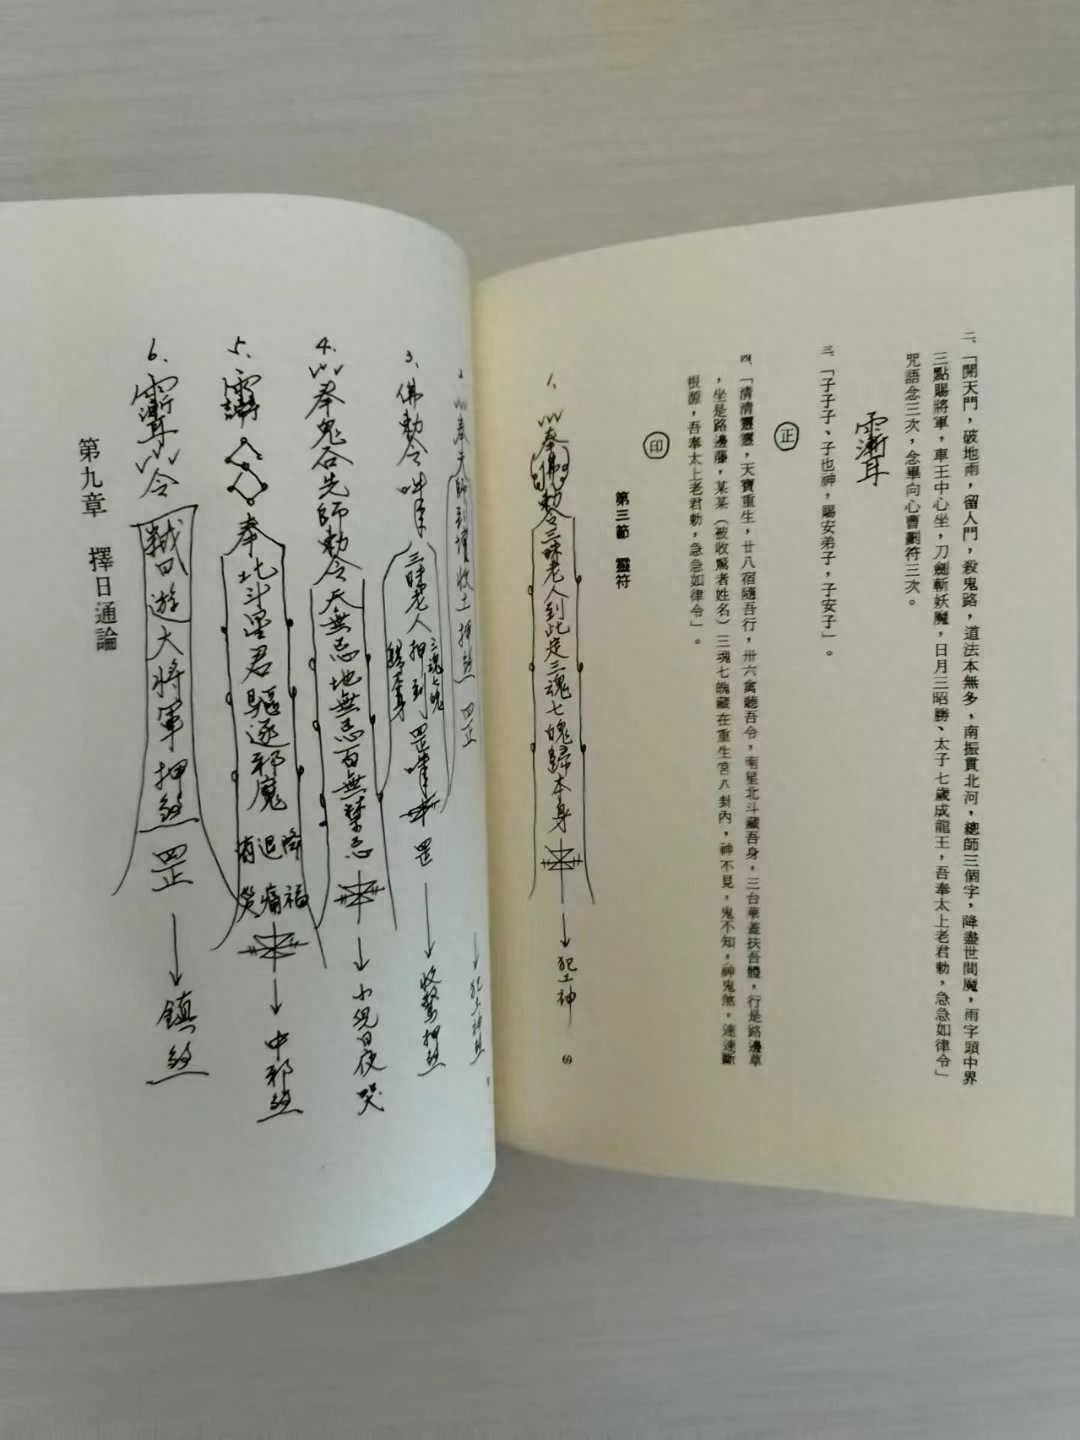 二、「開天門，破地雨，留人門，殺鬼路，道法本無多，南振貫北河，總師三個字，降盡世間魔，雨字頭中界
三點賜將軍，車王中心坐，刀劍斬妖魔，日月三昭勝、太子七歲成龍王，吾奉太上老君勅，急急如律令」
咒語念三次，念畢向心書劃符三次。
三、「子子子、子也神，賜安弟子，子安子」。
正
四、「清清靈靈，天寶重生，廿八宿隨吾行，卅六禽聽吾令，南星北斗藏吾身，三台華蓋扶吾體，行是路邊草
，坐是路邊藤，某某（被收驚者姓名）三魂七魄藏在重生宮八卦內，神不見，鬼不知，神鬼煞，速速斷
根源，吾奉太上老君勅，急急如律令」。
印
第三節　靈符
1、奉佛勅令三昧老人到此定三魂七魄歸本身→犯土神
69
2、奉天師到壇收土押煞罡→犯土神煞
3、佛勅令三昧老人押到罡→收驚押煞
三魂七魄
歸本身
4、奉鬼谷先師勅令天無忌地無忌百無禁忌→小兒日夜哭
5、奉北斗星君驅逐邪魔→中邪煞
降福
退痛
6、令遊大將軍押煞罡→鎮煞
第九章　擇日通論